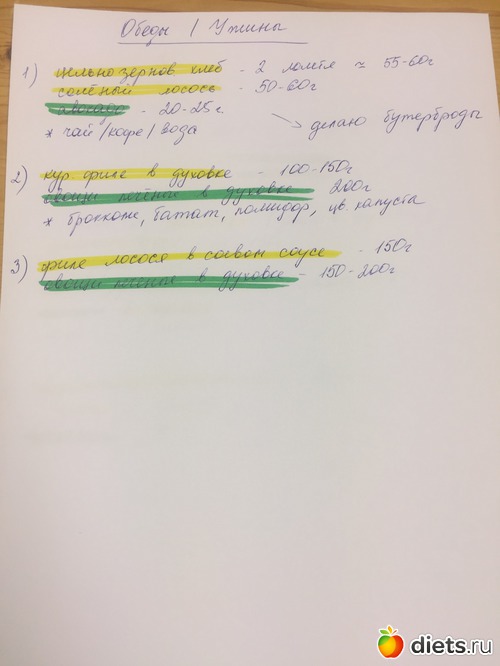 Обеды / Ужины
1) цельнозернов хлеб - 2 ломтя ≈ 55-60г
солёный лосось - 50-60г
авокадо - 20-25г.
* чай/кофе/вода
→ делаю бутерброды
2) кур. филе в духовке - 100-150г
овощи печёные в духовке 200г
* брокколи, батат, помидор, цв. капуста
3) филе лосося в соевом соусе - 150г
овощи печёные в духовке - 150-200г
diets.ru